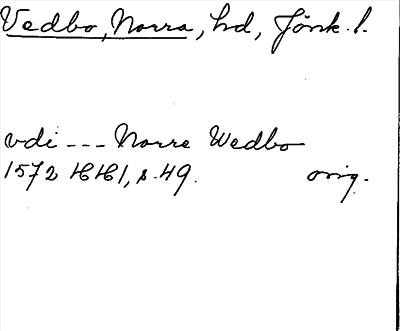 Vedbo, Norra, hd, Jönk. l.
vdi --- Norre Wedbo
1572 HH1, s. 49. orig.